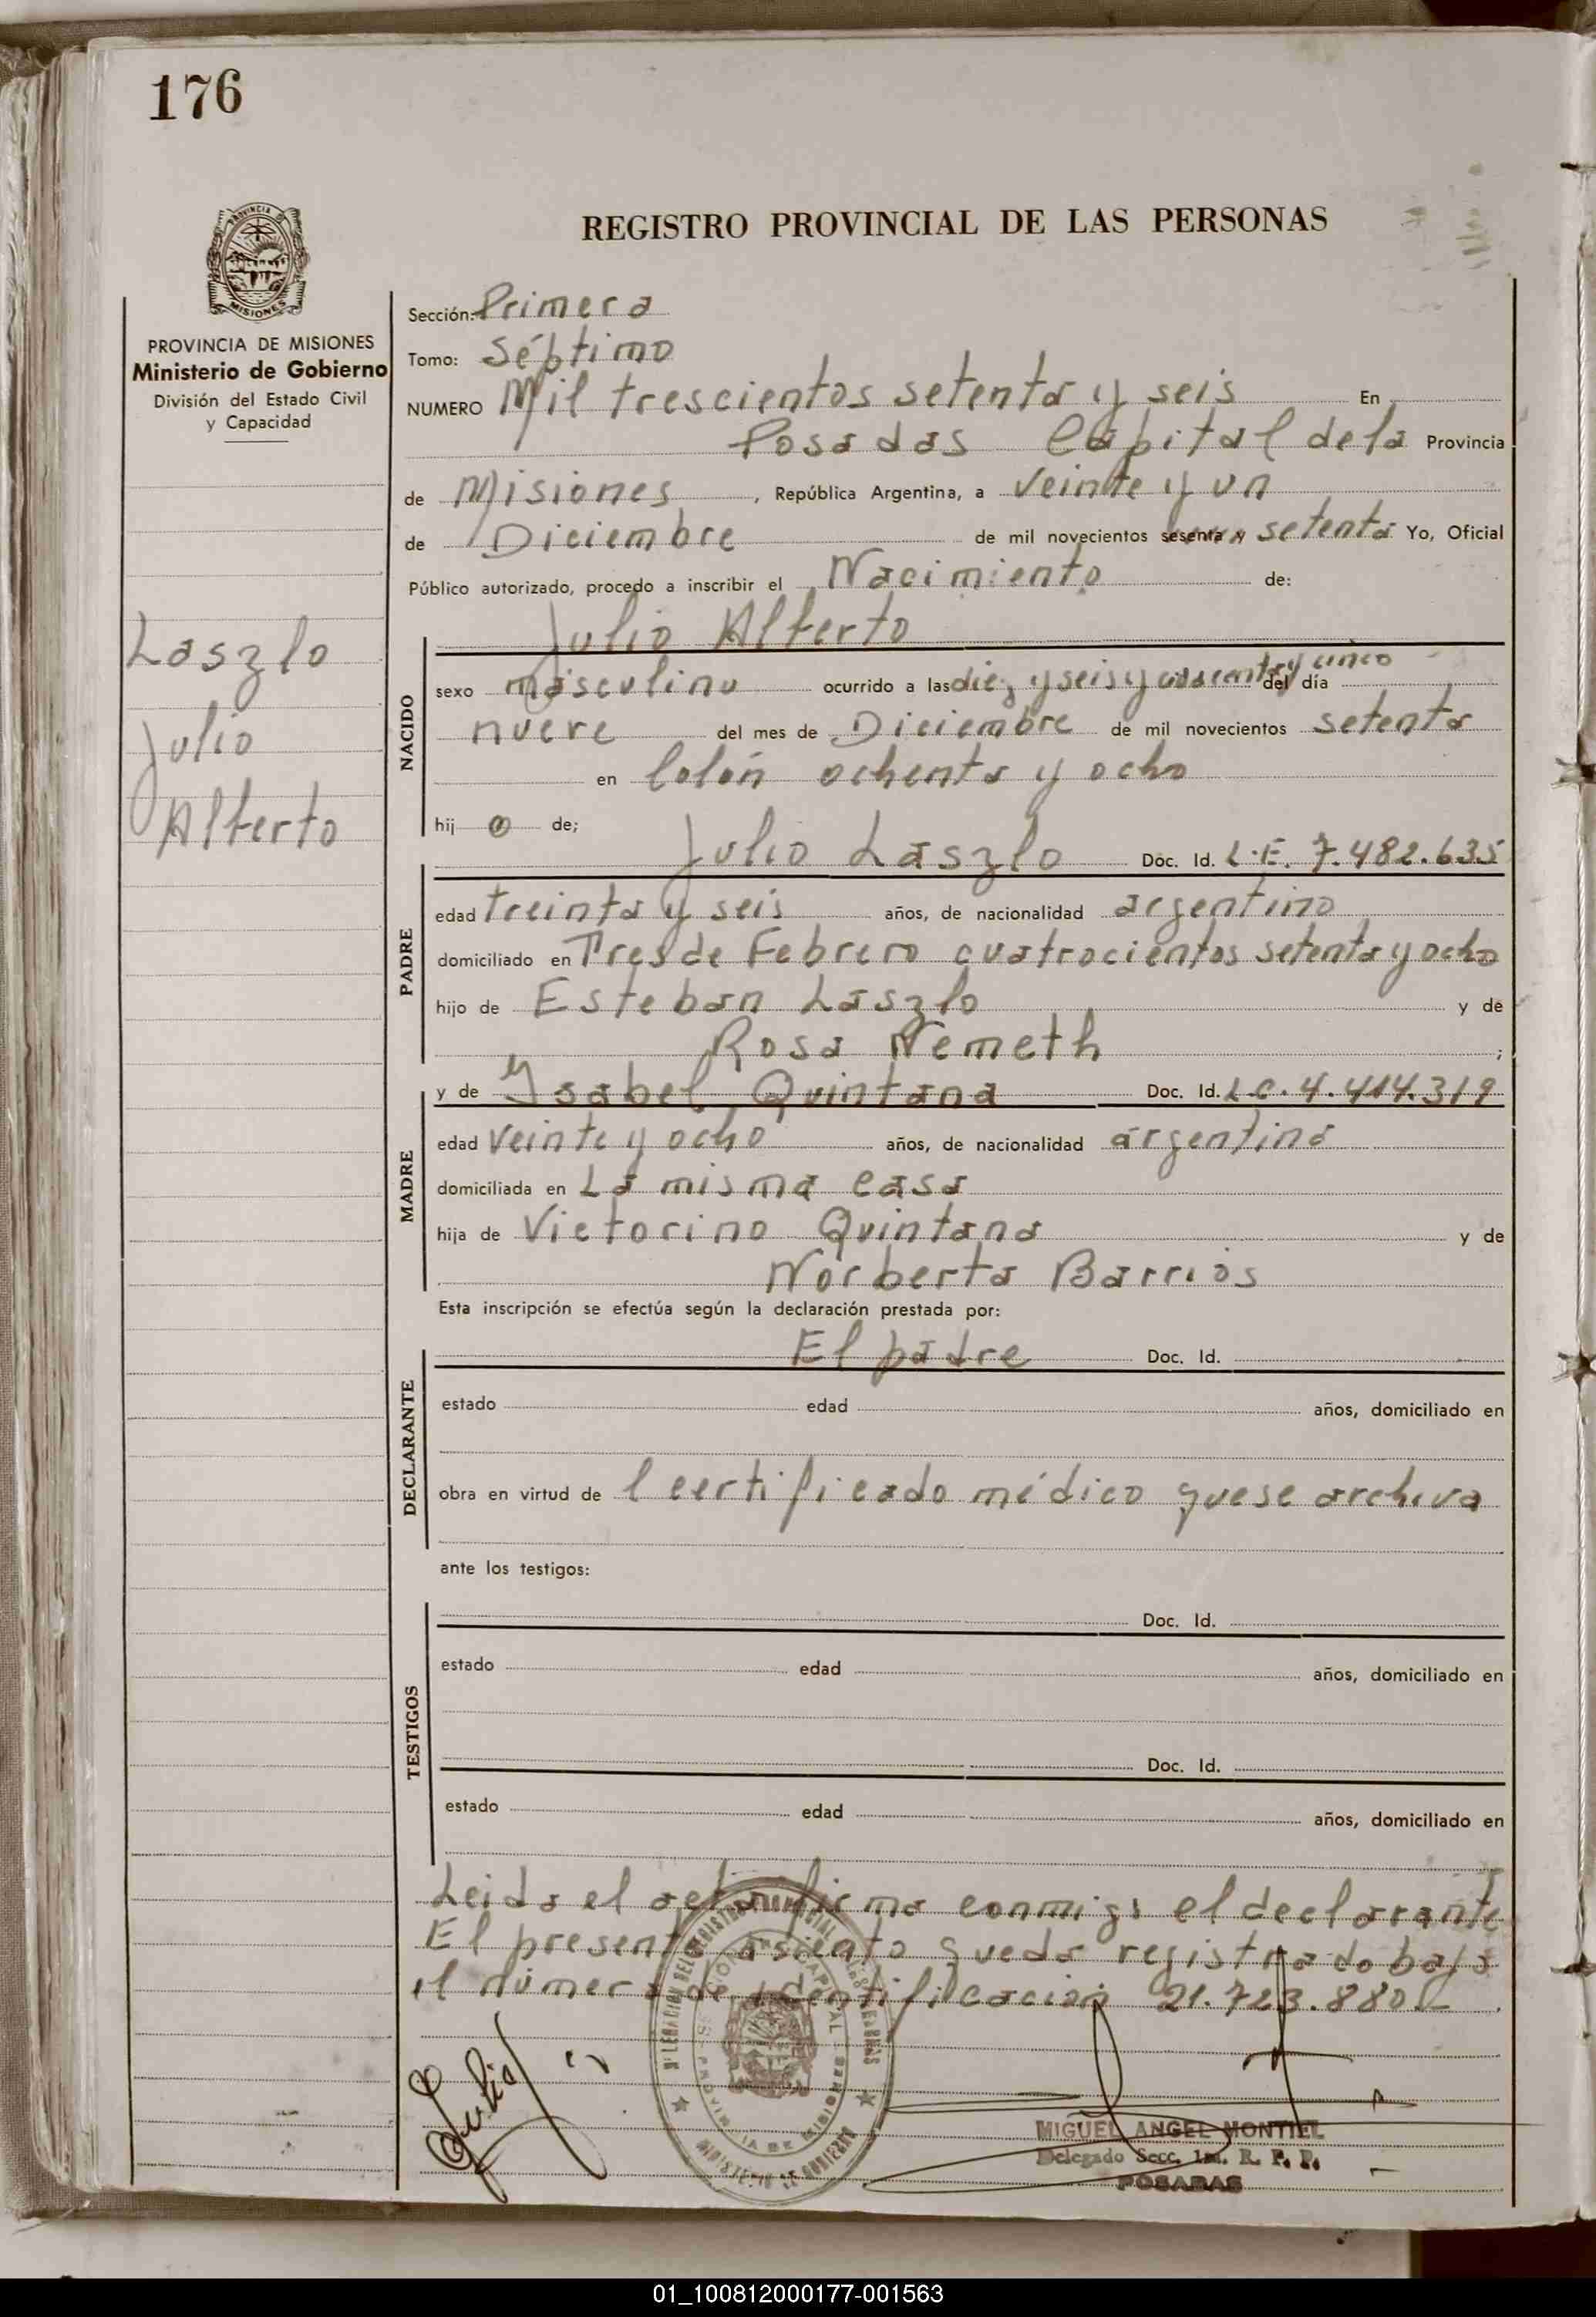 176
REGISTRO PROVINCIAL DE LAS PERSONAS
PROVINCIA DE MISIONES
Ministerio de Gobierno
División del Estado Civil
y Capacidad
Laszlo
Julio
Alberto
Sección: Primera
Tomo: Séptimo
NUMERO Mil trescientos setenta y seis En
Posadas Capital de la Provincia
de Misiones, República Argentina, a veinte y un
de Diciembre de mil novecientos sesenta y setenta Yo, Oficial
Público autorizado, procedo a inscribir el Nacimiento de:
Julio Alberto
NACIDO
sexo masculino ocurrido a las diez y seis y cuarenta y cinco del día
nueve del mes de Diciembre de mil novecientos setenta
en Colón ochenta y ocho
hij o de;
Julio Laszlo Doc. Id. L.E. 7.482.635
PADRE
edad treinta y seis años, de nacionalidad argentino
domiciliado en Tres de Febrero cuatrocientos setenta y ocho
hijo de Esteban Laszlo y de
Rosa Nemeth ;
y de Ysabel Quintana Doc. Id. L.C. 4.414.319
MADRE
edad veinte y ocho años, de nacionalidad argentina
domiciliada en La misma casa
hija de Victorino Quintana y de
Norberta Barrios
Esta inscripción se efectúa según la declaración prestada por:
El padre Doc. Id.
DECLARANTE
estado edad años, domiciliado en
obra en virtud de l certificado médico que se archiva
ante los testigos:
Doc. Id.
TESTIGOS
estado edad años, domiciliado en
Doc. Id.
estado edad años, domiciliado en
Leida el acta firma conmigo el declarante
El presente asiento queda registrado bajo
el número de identificación 21.723.880
Julio
MIGUEL ANGEL MONTIEL
Delegado Secc. 1ra. R. P. P.
POSADAS
01_100812000177-001563